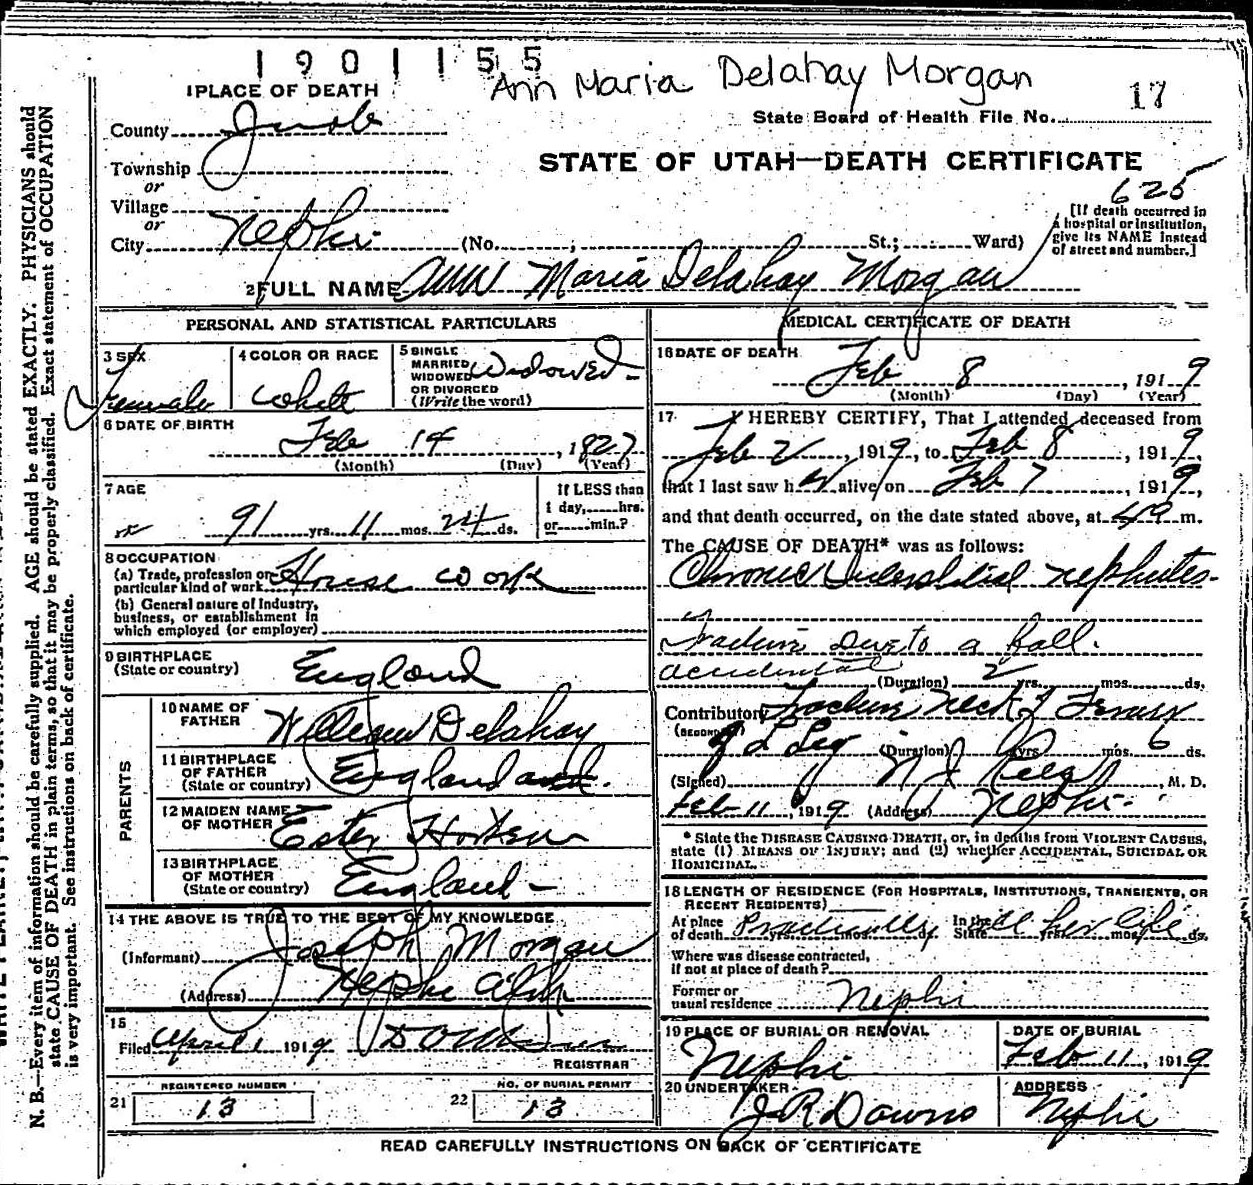 1901155
Ann Maria Delahay Morgan
17
1 PLACE OF DEATH
State Board of Health File No.
County Juab
STATE OF UTAH—DEATH CERTIFICATE
Township
or
Village
or
City Nephi (No. , St.; Ward)
625
[If death occurred in
a hospital or institution,
give its NAME instead
of street and number.]
2 FULL NAME Ann Maria Delahay Morgan
PERSONAL AND STATISTICAL PARTICULARS
3 SEX
Female
4 COLOR OR RACE
White
5 SINGLE
MARRIED
WIDOWED
OR DIVORCED
(Write the word)
Widowed
6 DATE OF BIRTH
Feb 14, 1827
(Month) (Day) (Year)
7 AGE
91 yrs. 11 mos. 24 ds.
If LESS than
1 day, hrs.
or min.?
8 OCCUPATION
(a) Trade, profession or
particular kind of work House work
(b) General nature of Industry,
business, or establishment in
which employed (or employer)
9 BIRTHPLACE
(State or country) England
PARENTS
10 NAME OF
FATHER William Delahay
11 BIRTHPLACE
OF FATHER
(State or country) England
12 MAIDEN NAME
OF MOTHER Ester
13 BIRTHPLACE
OF MOTHER
(State or country) England
14 THE ABOVE IS TRUE TO THE BEST OF MY KNOWLEDGE
(Informant) Joseph Morgan
(Address) Nephi Utah
15
Filed April 1 1919
REGISTRAR
REGISTERED NUMBER
21 13
NO. OF BURIAL PERMIT
22 13
MEDICAL CERTIFICATE OF DEATH
16 DATE OF DEATH
Feb 8, 1919
(Month) (Day) (Year)
17 I HEREBY CERTIFY, That I attended deceased from
Feb 2, 1919, to Feb 8, 1919,
that I last saw her alive on Feb 7, 1919,
and that death occurred, on the date stated above, at m.
The CAUSE OF DEATH* was as follows:
Chronic Interstitial nephrites
Fracture due to a fall.
accidental
(Duration) 2 yrs. mos. ds.
Contributory Fracture Neck of Femur
(SECONDARY)
Leg (Duration) yrs. mos. 6 ds.
(Signed) M. D.
Feb 11, 1919 (Address) Nephi
* State the DISEASE CAUSING DEATH, or, in deaths from VIOLENT CAUSES,
state (1) MEANS OF INJURY; and (2) whether ACCIDENTAL, SUICIDAL OR
HOMICIDAL.
18 LENGTH OF RESIDENCE (FOR HOSPITALS, INSTITUTIONS, TRANSIENTS, OR
RECENT RESIDENTS)
At place
of death Practically yrs. mos. In the State all her life yrs. mos. ds.
Where was disease contracted,
if not at place of death?
Former or
usual residence Nephi
19 PLACE OF BURIAL OR REMOVAL
Nephi
DATE OF BURIAL
Feb 11, 1919
20 UNDERTAKER
J R Downs
ADDRESS
Nephi
READ CAREFULLY INSTRUCTIONS ON BACK OF CERTIFICATE
N. B.—Every item of information should be carefully supplied. AGE should be stated EXACTLY. PHYSICIANS should
state CAUSE OF DEATH in plain terms, so that it may be properly classified. Exact statement of OCCUPATION
is very important. See instructions on back of certificate.